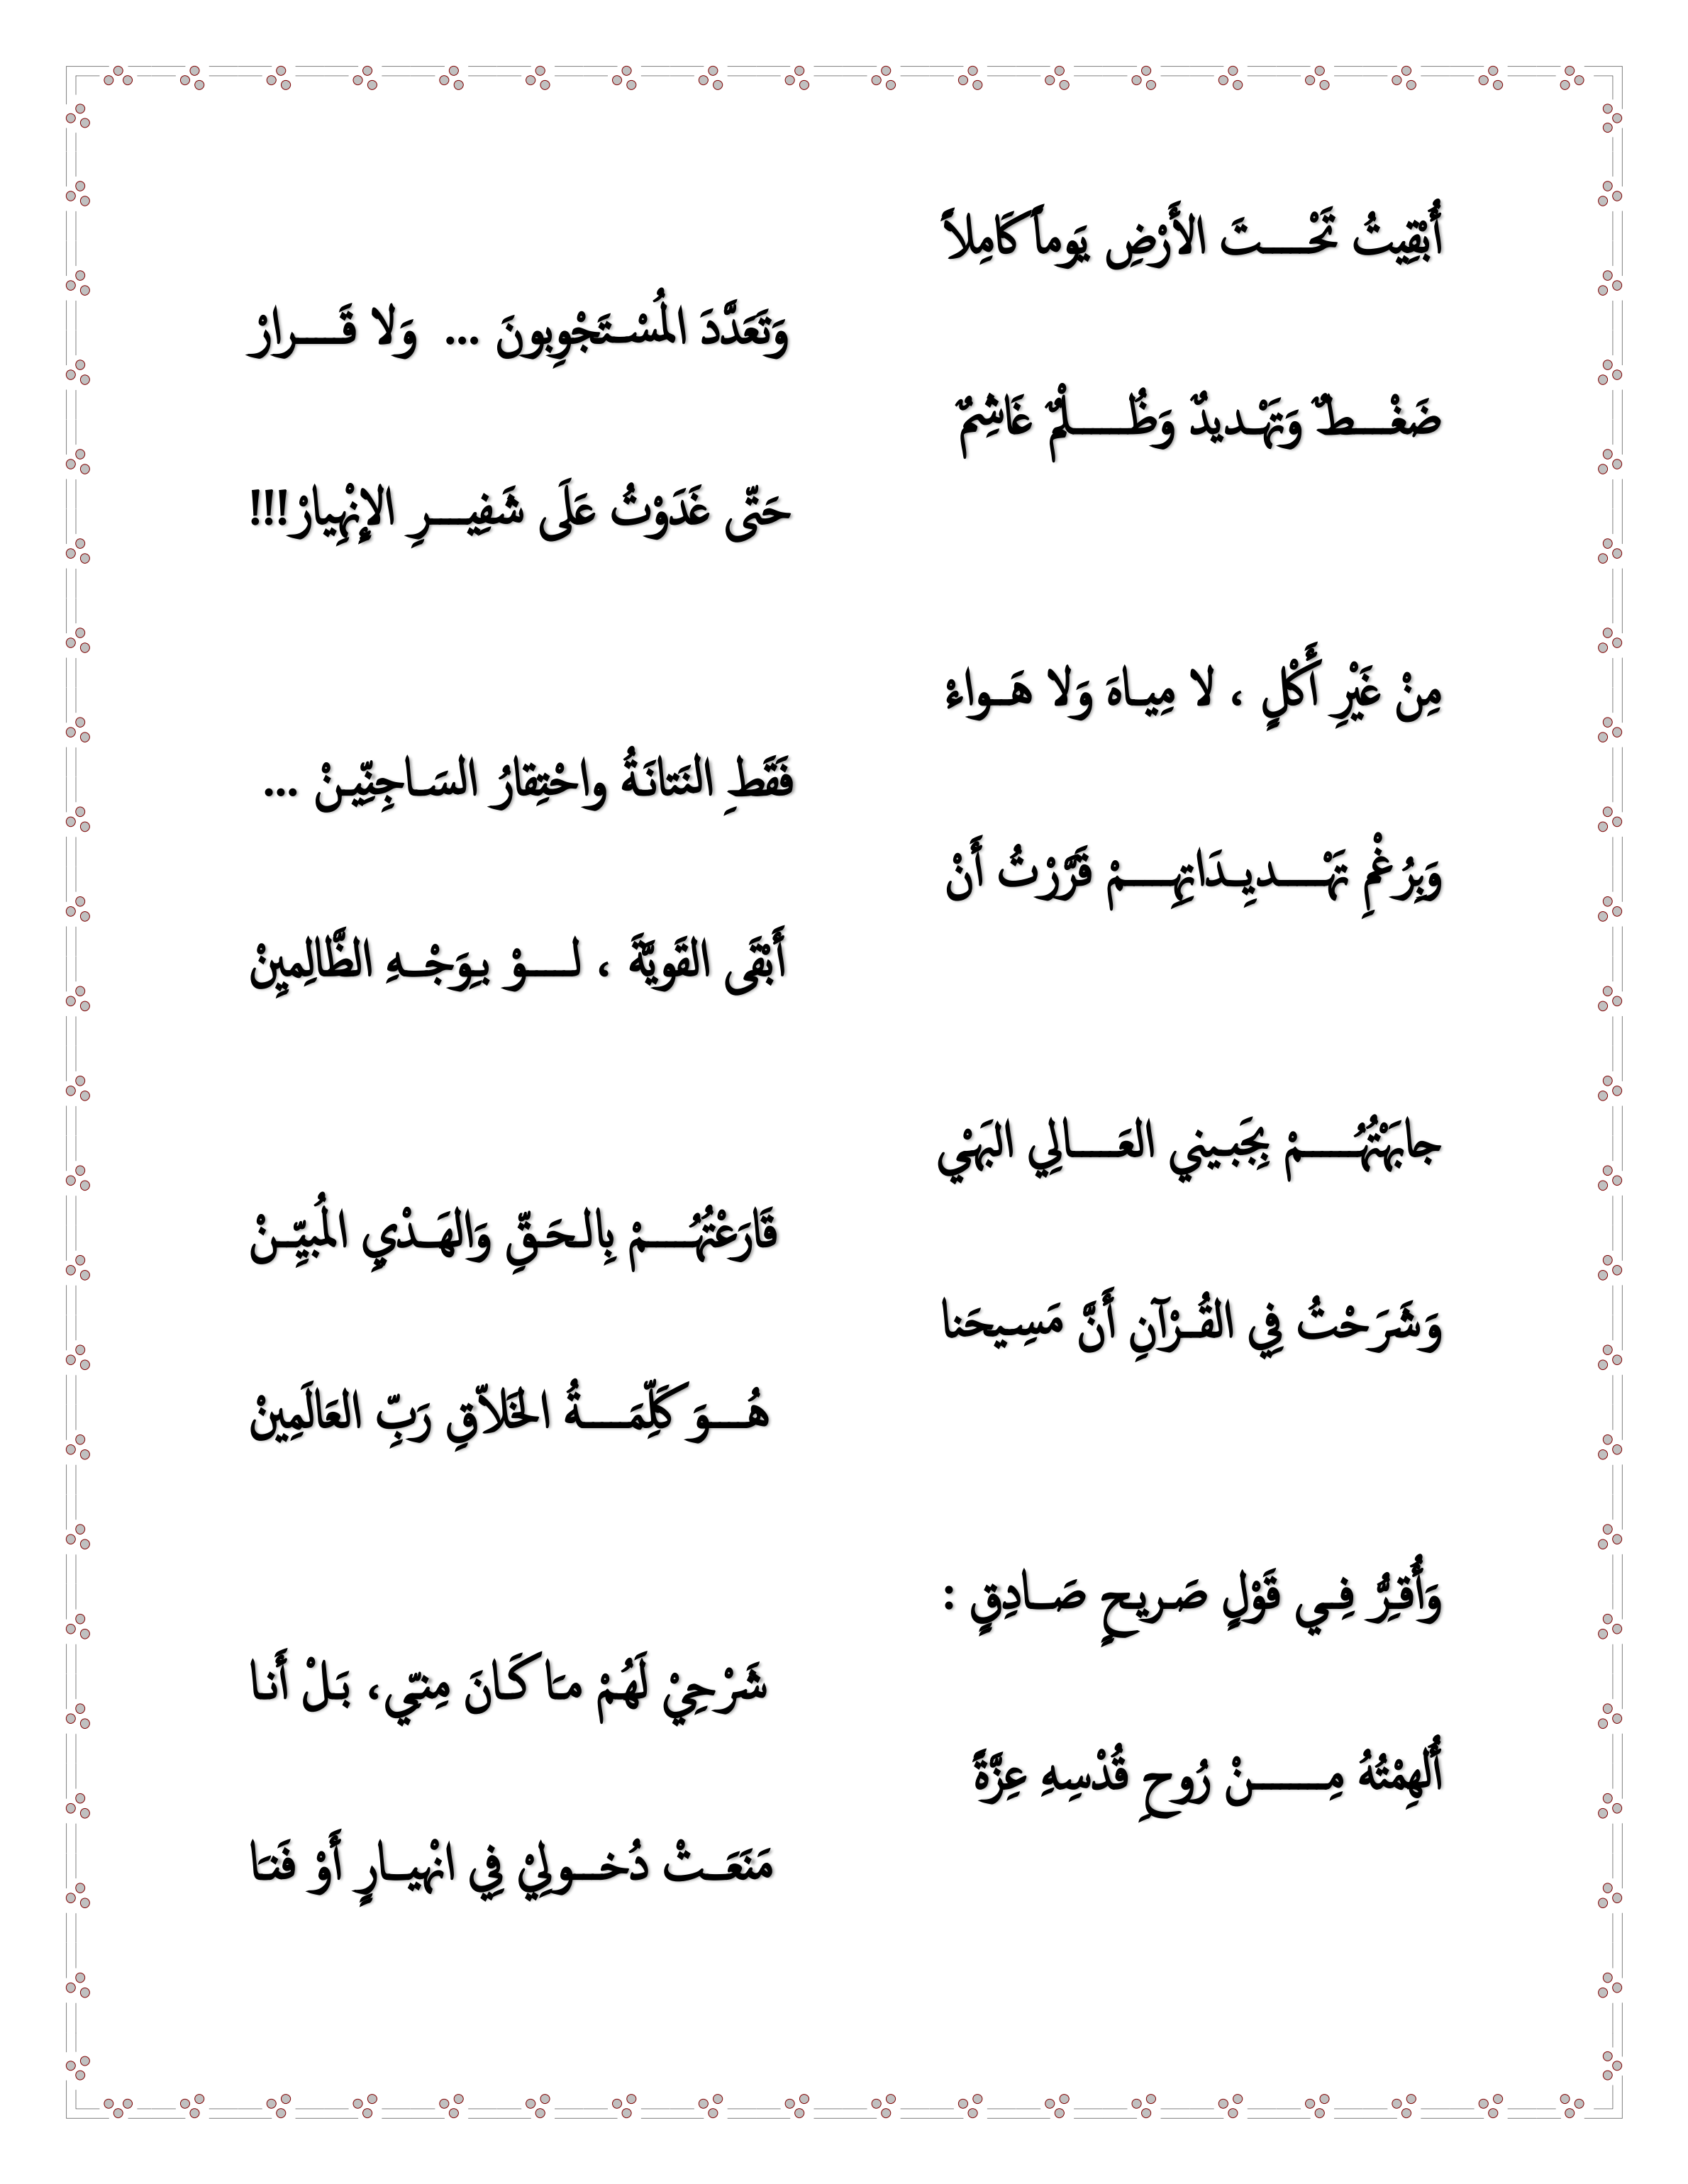 أُبْقِيتُ تَحْـــــتَ الأَرْضِ يَوماً كَامِلاً
وَتَعَدَّدَ المُسْـتَجْوِبونَ ... وَلا قَـــــرارْ
ضَغْـــــطٌ وَتَهْـديدٌ وَظُـــــلْمٌ غَاشِمٌ
حَتّى غَدَوْتُ عَلَى شَفِيـــــرِ الإِنْهِيارْ!!!
مِنْ غَيْرِ أَكْلٍ ، لا مِيـاهَ وَلا هَـواءْ
فَقَطِ النَتانَـةُ واحْتِقارُ السَـاجِنِّيـنْ ...
وَبِرُغْمِ تَهْـــــديـِدَاتِهِـــــمْ قَرَّرْتُ أَنْ
أَبْقَى القَويَّةَ ، لـــــوْ بـِوَجْـهِ الظَّالِمِينْ
جابَهْتُهُـــــمْ بِجَبـيني العَـــــالِي البَهْي
قَارَعْتُهُـــــمْ بِالـحَـقِّ وَالهَـدْيِ المُبيِّـنْ
وَشَرَحْتُ فِي القُـرْآنِ أَنَّ مَسِـيحَنا
هُـــــوَ كَلِّمَـــــةُ الخَلاّقِ رَبِّ العَالَمِينْ
وَأُقـِرُّ فِـي قَوْلٍ صَـريـحٍ صَـادِقٍ :
شَرْحِيْ لَهُمْ مـَا كَـانَ مِنـّي، بَـلْ أَنـا
أُلهِمْتُهُ مِـــــنْ رُوحِ قُدْسِهِ عِزَّةً
مَنَعَـتْ دُخـــولِيْ فِي انْهيـارٍ أَوْ فَنـَا